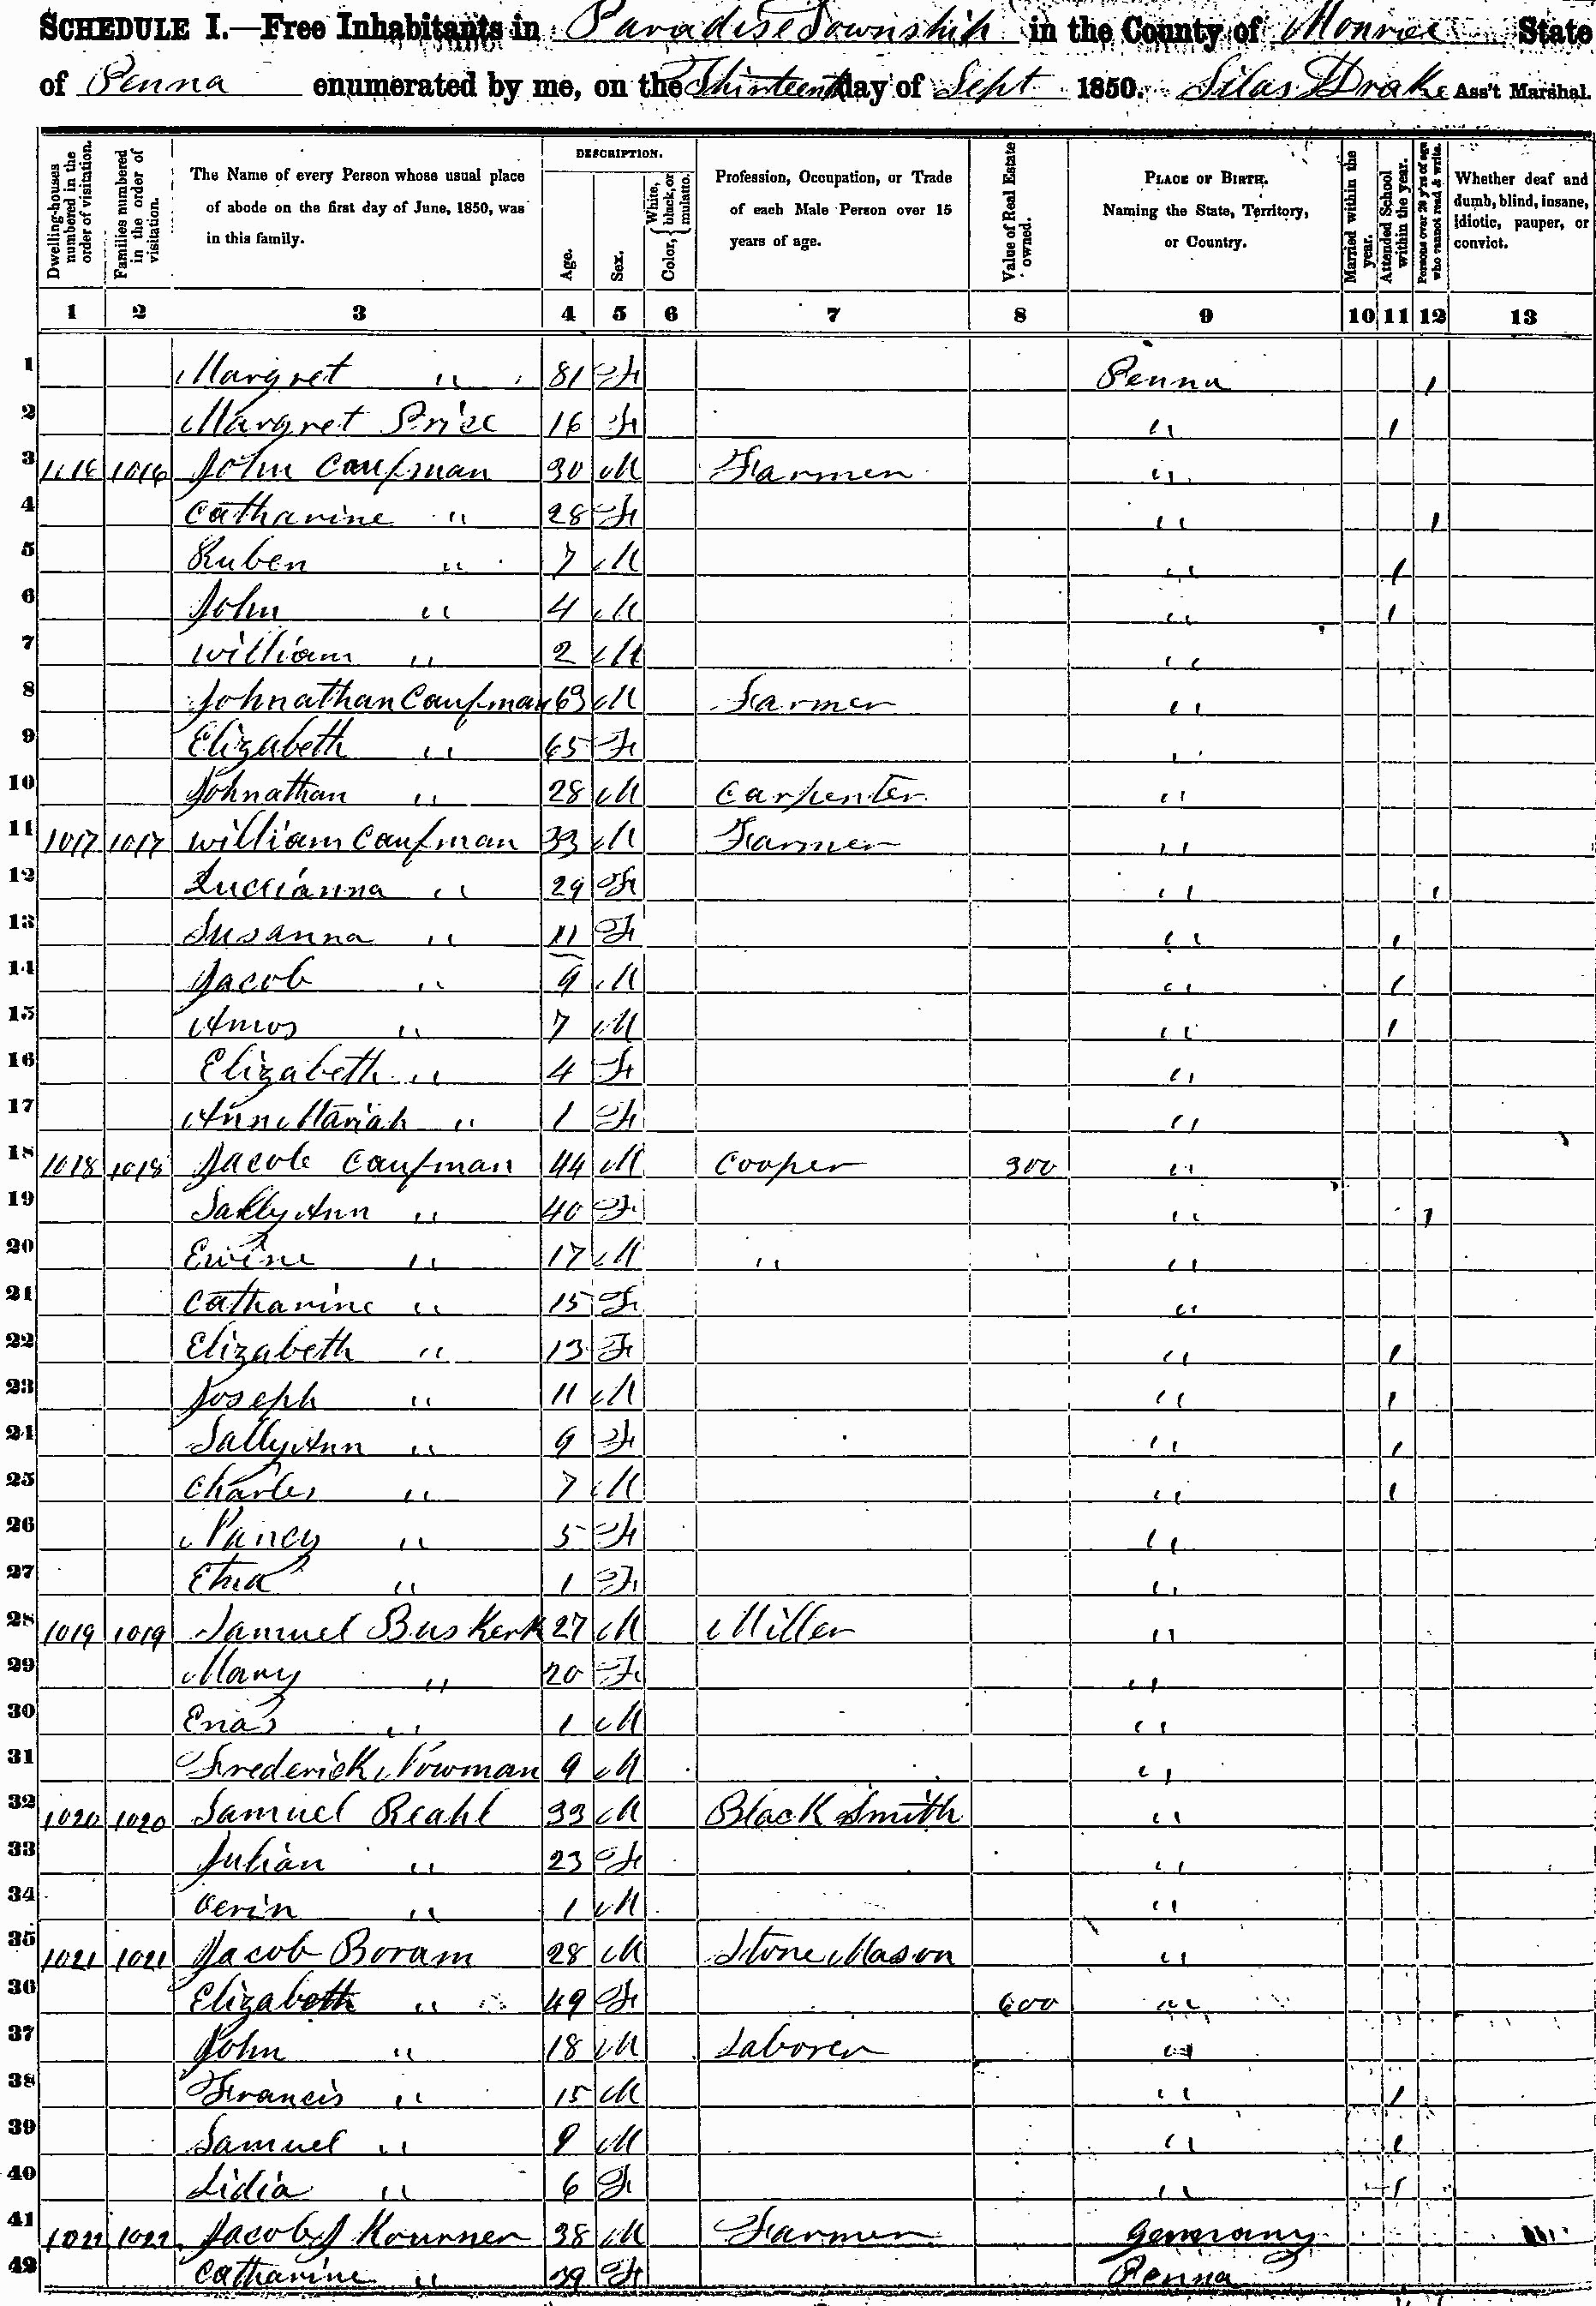 SCHEDULE I.—Free Inhabitants in Paradise Township in the County of Monroe State
of Penna enumerated by me, on the Thirteenth day of Sept 1850. Silas Drake Ass't Marshal.
Dwelling-houses numbered in the order of visitation.
Families numbered in the order of visitation.
The Name of every Person whose usual place of abode on the first day of June, 1850, was in this family.
DESCRIPTION.
Age.
Sex.
Color, { White, black, or mulatto.
Profession, Occupation, or Trade of each Male Person over 15 years of age.
Value of Real Estate owned.
PLACE OF BIRTH. Naming the State, Territory, or Country.
Married within the year.
Attended School within the year.
Persons over 20 y'rs of age who cannot read & write.
Whether deaf and dumb, blind, insane, idiotic, pauper, or convict.
1 2 3 4 5 6 7 8 9 10 11 12 13
1 Margret " 81 F Penna 1
2 Margret Price 16 F " 1
3 1016 1016 John Caufman 30 M Farmer "
4 Catharine " 28 F " 1
5 Ruben " 7 M " 1
6 John " 4 M " 1
7 William " 2 M "
8 Johnathan Caufman 63 M Farmer "
9 Elizabeth " 65 F "
10 Johnathan " 28 M Carpenter "
11 1017 1017 William Caufman 33 M Farmer "
12 " 29 F " 1
13 Susanna " 11 F " 1
14 Jacob " 9 M " 1
15 Amos " 7 M " 1
16 Elizabeth " 4 F "
17 Ann Mariah " 1 F "
18 1018 1018 Jacob Caufman 44 M Cooper 300 "
19 Sally Ann " 40 F " 1
20 Ervine " 17 M " "
21 Catharine " 15 F "
22 Elizabeth " 13 F " 1
23 Joseph " 11 M " 1
24 Sally Ann " 9 F " 1
25 Charles " 7 M " 1
26 Nancy " 5 F "
27 " 1 F "
28 1019 1019 Samuel Buskerk 27 M Miller "
29 Mary " 20 F "
30 " 1 M "
31 Frederick Nowman 9 M "
32 1020 1020 Samuel Reahl 33 M Black Smith "
33 Julian " 23 F "
34 " 1 M "
35 1021 1021 Jacob Boram 28 M Stone Mason "
36 Elizabeth " 49 F 600 "
37 John " 18 M Laborer "
38 Francis " 15 M " 1
39 Samuel " 9 M " 1
40 Lidia " 6 F " 1
41 1022 1022 Jacob J Kournner 38 M Farmer Germany
42 Catharine " 39 F Penna